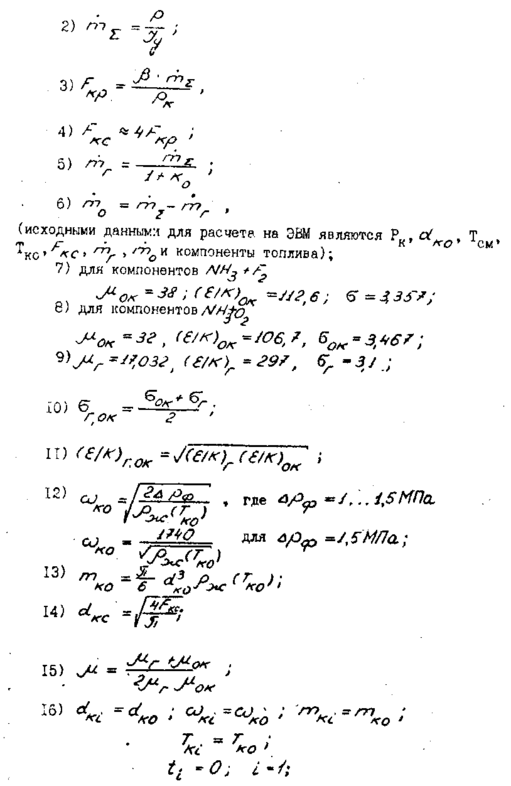 2) ṁ_Σ = P / J_y ;
3) F_кр = β · ṁ_Σ / P_к ,
4) F_кс ≈ 4F_кр ;
5) ṁ_г = ṁ_Σ / (1 + K_o) ;
6) ṁ_o = ṁ_Σ - ṁ_г ,
(исходными данными для расчета на ЭВМ являются P_к, d_ко, T_см,
T_ко, F_кс, ṁ_г, ṁ_o и компоненты топлива);
7) для компонентов NH₃ + F₂
μ_ок = 38 ; (ε/к)_ок = 112,6 ; σ = 3,357 ;
8) для компонентов NH₃O₂
μ_ок = 32 , (ε/к)_ок = 106,7, σ_ок = 3,467 ;
9) μ_г = 17,032, (ε/к)_г = 297, σ_г = 3,1 .;
10) σ_г,ок = (σ_ок + σ_г) / 2 ;
11) (ε/к)_г.ок = √((ε/к)_г (ε/к)_ок) ;
12) ω_ко = √(2Δp_ф / ρ_ж(T_ко)) , где Δp_ф = 1...1,5 МПа
ω_ко = 1740 / √(ρ_ж(T_ко)) для Δp_ф = 1,5 МПа ;
13) m_ко = π/6 d³_ко ρ_ж (T_ко) ;
14) d_кс = √(4F_кс / π) ;
15) μ = (μ_г + μ_ок) / (2μ_г μ_ок) ;
16) d_кi = d_ко ; ω_кi = ω_ко ; m_кi = m_ко ;
T_кi = T_ко ;
t_i = 0 ; i = 1 ;